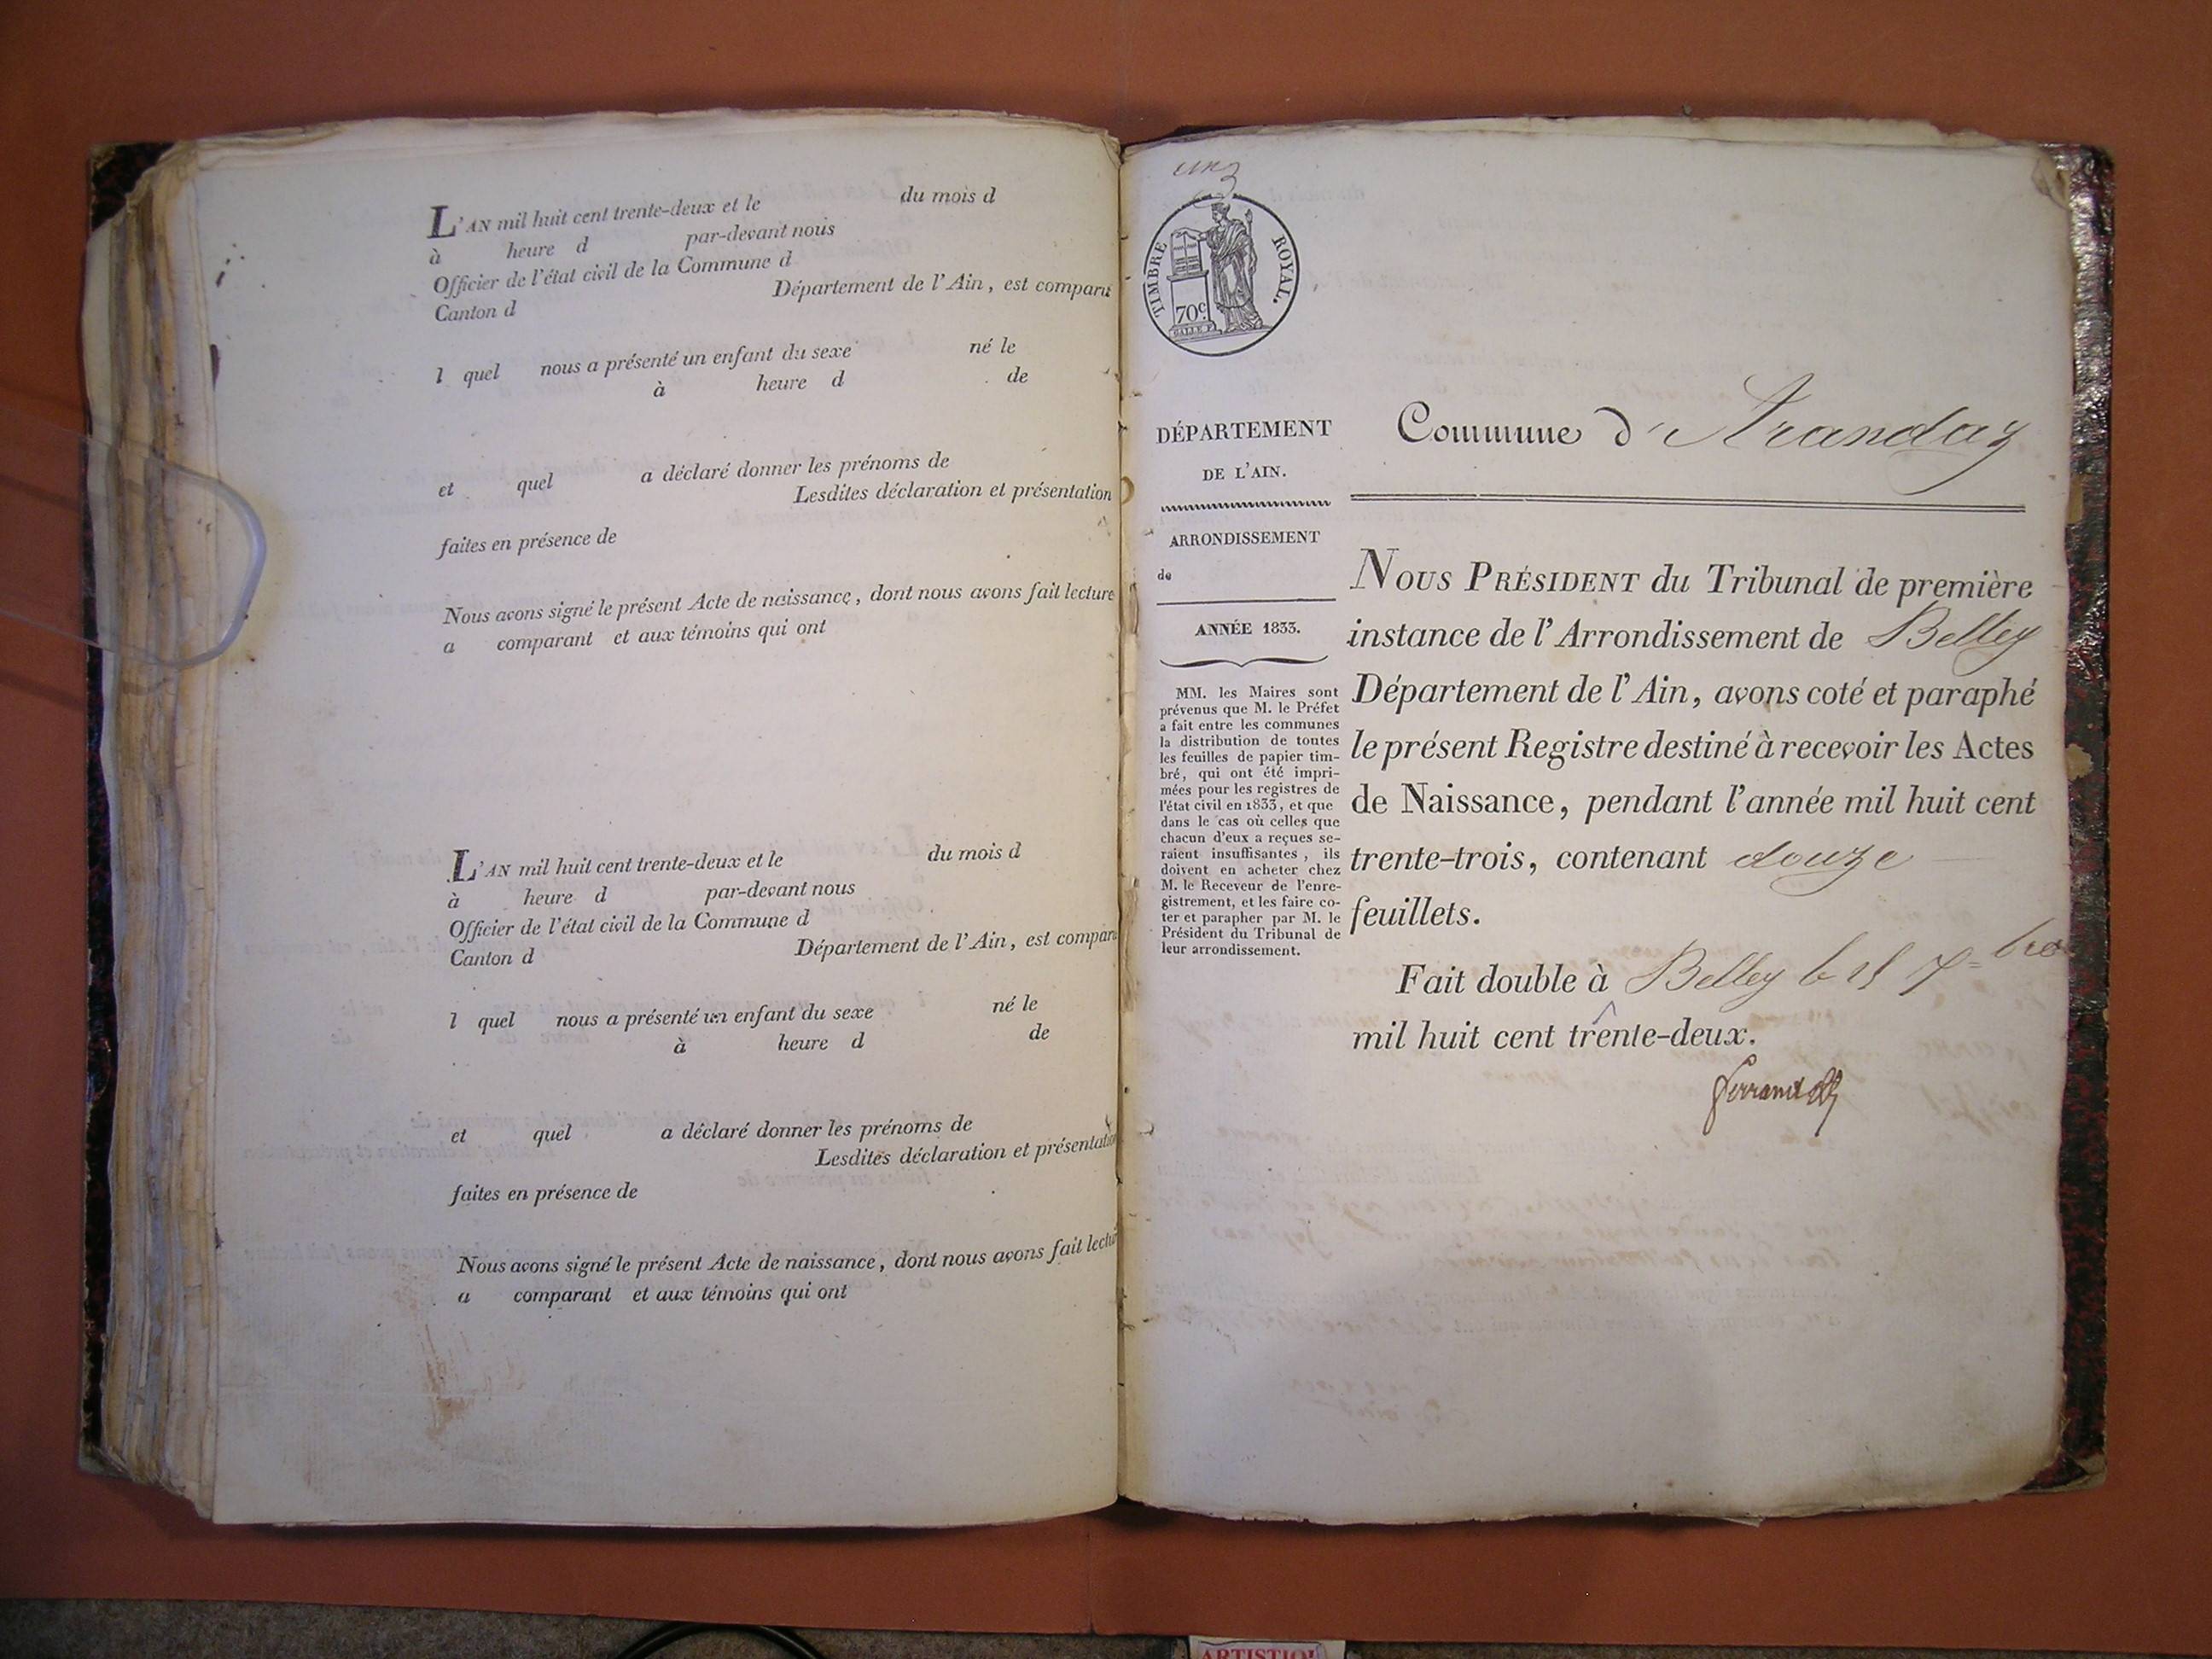 L'AN mil huit cent trente-deux et le du mois d
à heure d par-devant nous
Officier de l'état civil de la Commune d
Canton d Département de l'Ain, est comparu
l quel nous a présenté un enfant du sexe né le
à heure d de
et quel a déclaré donner les prénoms de
Lesdites déclaration et présentation
faites en présence de
Nous avons signé le présent Acte de naissance, dont nous avons fait lecture
a comparant et aux témoins qui ont
L'AN mil huit cent trente-deux et le du mois d
à heure d par-devant nous
Officier de l'état civil de la Commune d
Canton d Département de l'Ain, est compar
l quel nous a présenté un enfant du sexe né le
à heure d de
et quel a déclaré donner les prénoms de
Lesdites déclaration et présentation
faites en présence de
Nous avons signé le présent Acte de naissance, dont nous avons fait lectu
a comparant et aux témoins qui ont
TIMBRE ROYAL.
70c
DÉPARTEMENT
DE L'AIN.
ARRONDISSEMENT
de
ANNÉE 1833.
MM. les Maires sont
prévenus que M. le Préfet
a fait entre les communes
la distribution de toutes
les feuilles de papier tim-
bré, qui ont été impri-
mées pour les registres de
l'état civil en 1833, et que
dans le cas où celles que
chacun d'eux a reçues se-
raient insuffisantes, ils
doivent en acheter chez
M. le Receveur de l'enre-
gistrement, et les faire co-
ter et parapher par M. le
Président du Tribunal de
leur arrondissement.
Commune d'Arandaz
NOUS PRÉSIDENT du Tribunal de première
instance de l'Arrondissement de Belley
Département de l'Ain, avons coté et paraphé
le présent Registre destiné à recevoir les Actes
de Naissance, pendant l'année mil huit cent
trente-trois, contenant douze
feuillets.
Fait double à Belley le bre
mil huit cent trente-deux.
ARTISTIQ